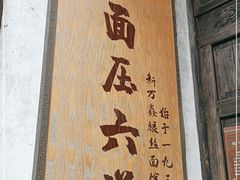 面压六
始于一九
新万鑫银丝面馆